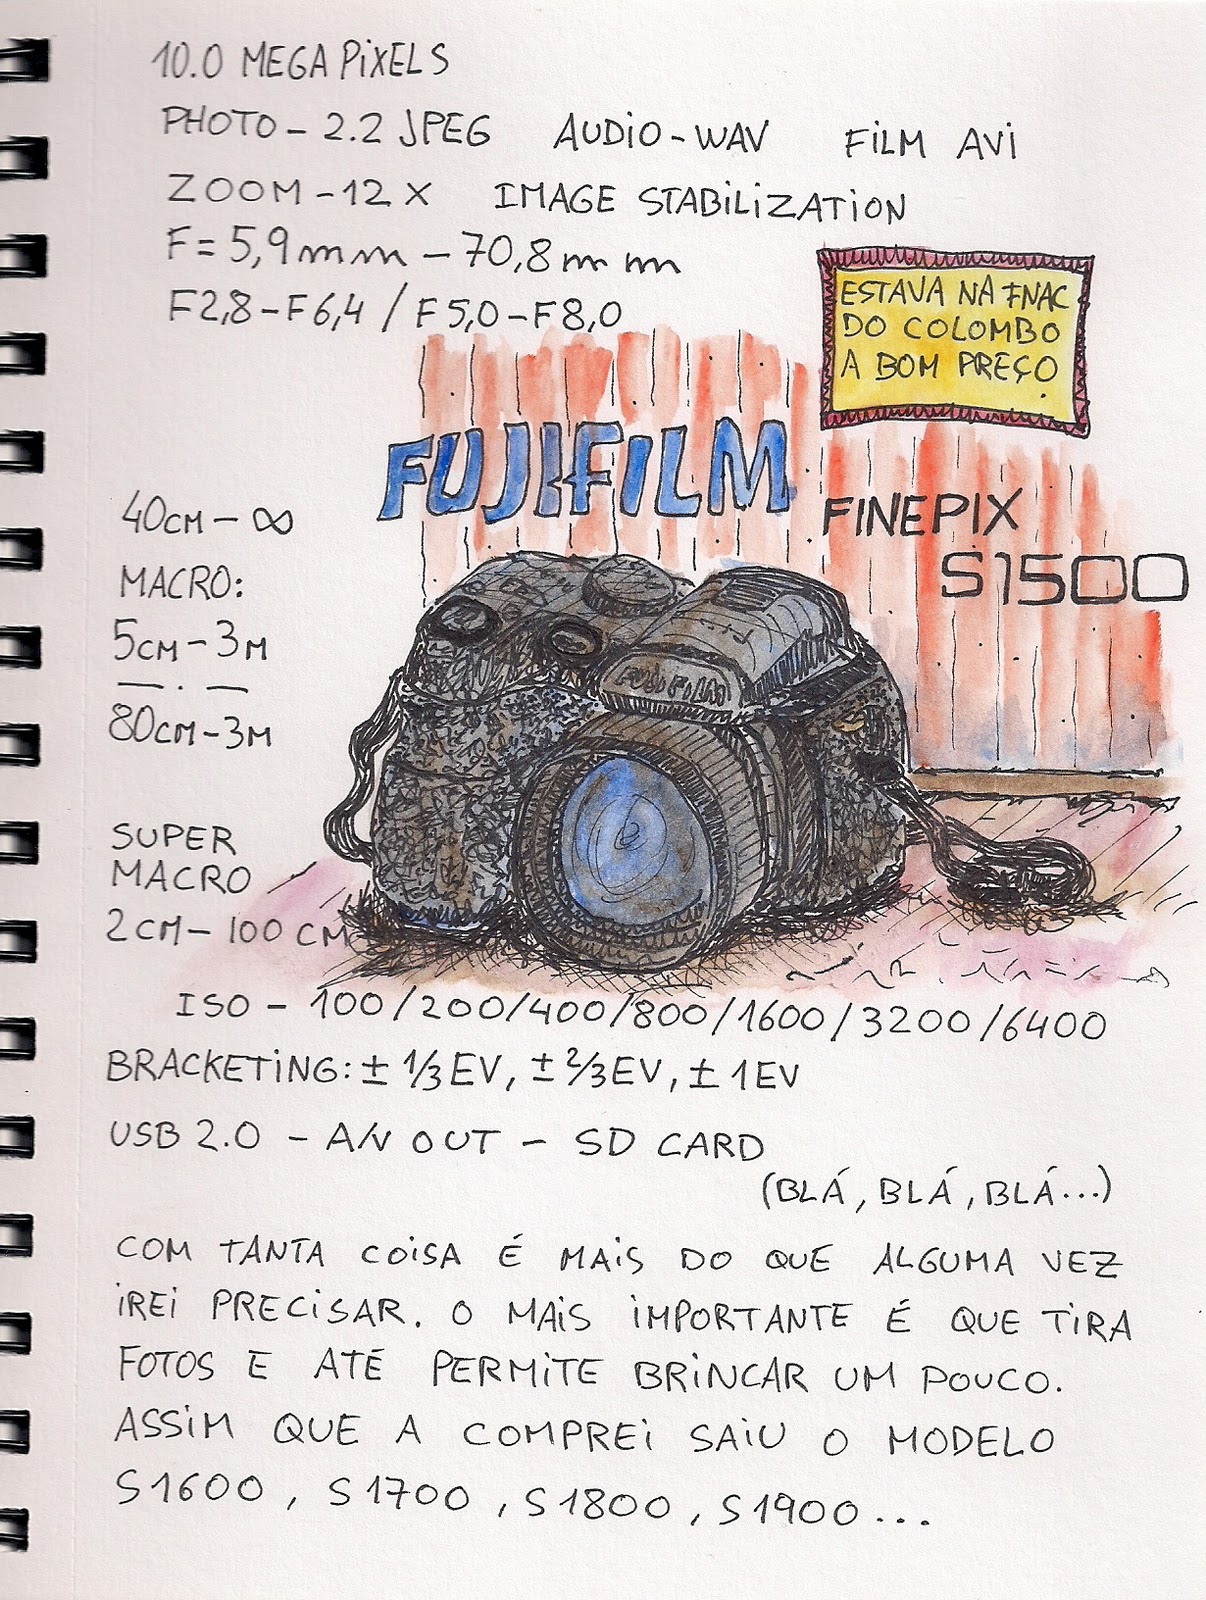 10.0 MEGA PIXELS
PHOTO - 2.2 JPEG AUDIO - WAV FILM AVI
ZOOM - 12 X IMAGE STABILIZATION
F = 5,9mm - 70,8mm
F2,8 - F6,4 / F5,0 - F8,0
ESTAVA NA FNAC
DO COLOMBO
A BOM PREÇO
FUJIFILM
FINEPIX
S1500
40CM - ∞
MACRO:
5CM - 3M
— . —
80CM - 3M
FUJIFILM
SUPER
MACRO
2CM - 100 CM
ISO - 100/200/400/800/1600/3200/6400
BRACKETING: ± 1/3 EV, ± 2/3 EV, ± 1EV
USB 2.0 - A/V OUT - SD CARD
(BLÁ, BLÁ, BLÁ...)
COM TANTA COISA É MAIS DO QUE ALGUMA VEZ
IREI PRECISAR. O MAIS IMPORTANTE É QUE TIRA
FOTOS E ATÉ PERMITE BRINCAR UM POUCO.
ASSIM QUE A COMPREI SAIU O MODELO
S1600, S1700, S1800, S1900...